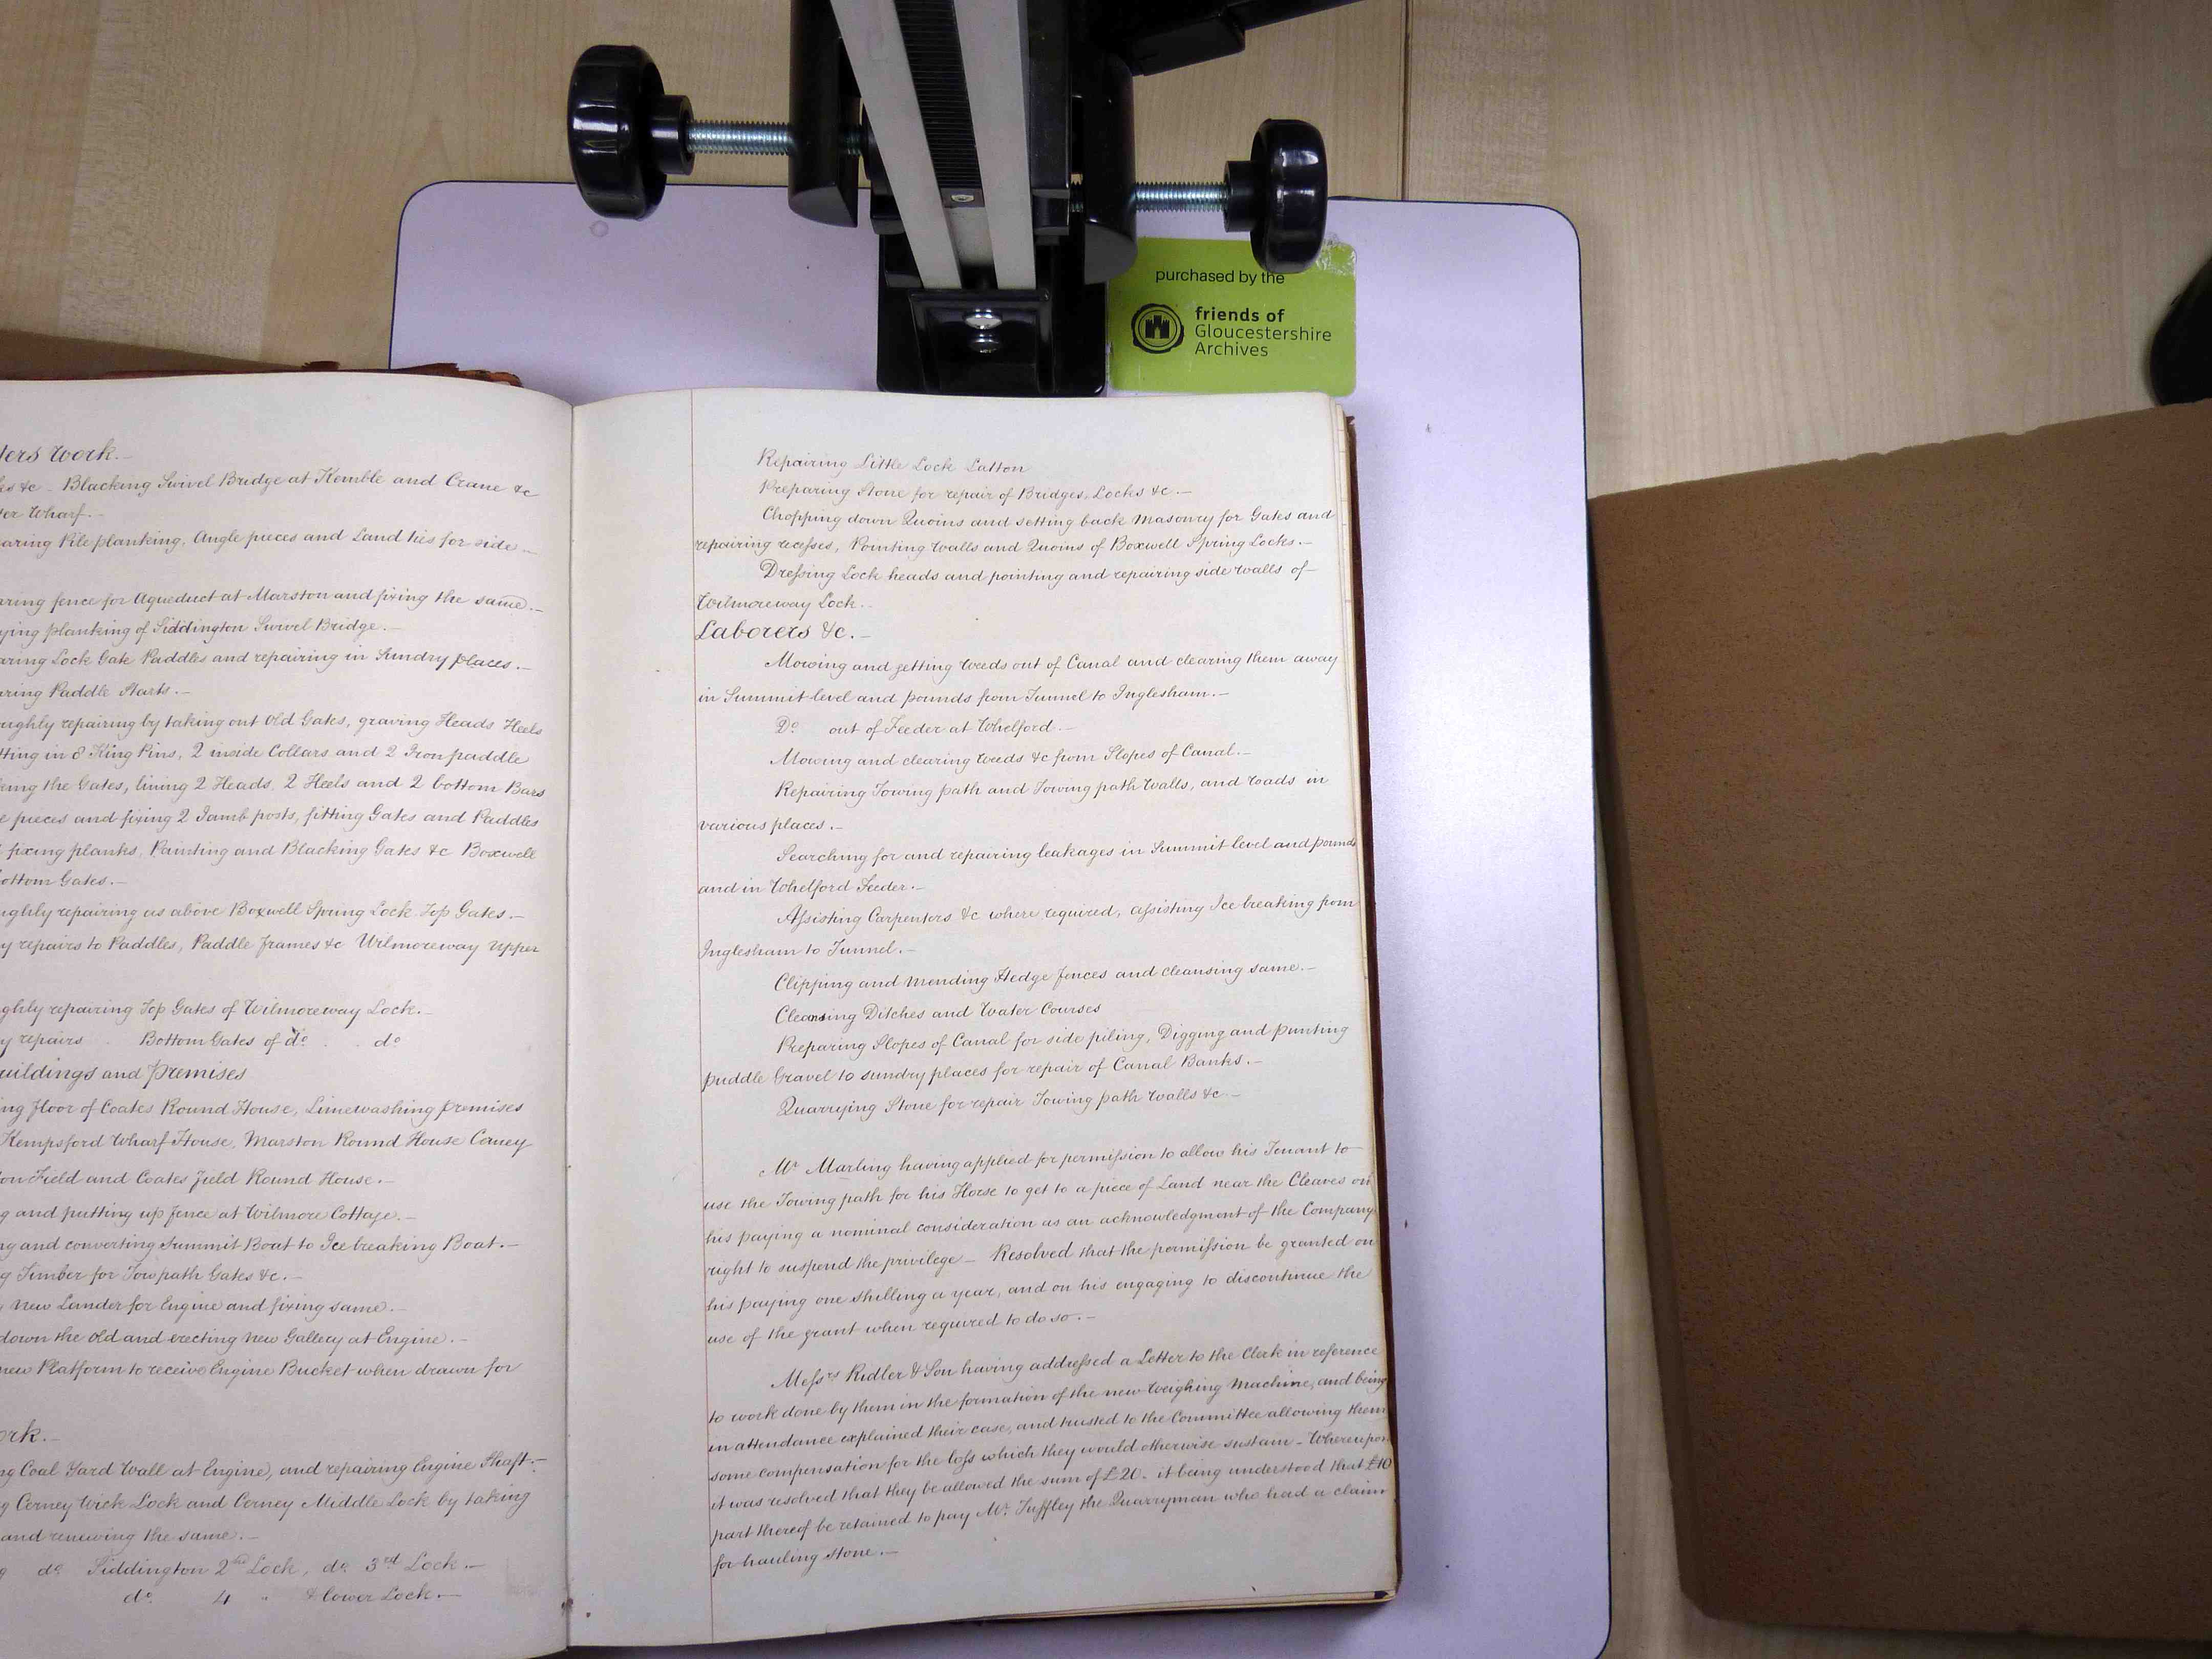 purchased by the
friends of
Gloucestershire
Archives
ters Work.—
ks &c – Blacking Swivel Bridge at Kemble and Crane &c
ter Wharf.—
aring Pile planking, Angle pieces and Land ties for side —
aring fence for Aqueduct at Marston and fixing the same.—
ying planking of Siddington Swivel Bridge.—
aring Lock Gate Paddles and repairing in Sundry places.—
aring Paddle Starts.—
oughly repairing by taking out Old Gates, graving Heads Heels
tting in 8 King Pins, 2 inside Collars and 2 Iron paddle
king the Gates, lining 2 Heads, 2 Heels and 2 bottom Bars
e pieces and fixing 2 Jamb posts, fitting Gates and Paddles
fixing planks, Painting and Blacking Gates &c Boxwell
ottom Gates.—
ughly repairing as above Boxwell Spring Lock Top Gates.—
y repairs to Paddles, Paddle frames &c Wilmoreway Upper
ghly repairing Top Gates of Wilmoreway Lock.—
y repairs Bottom Gates of do. do
uildings and Premises
ing floor of Coates Round House, Limewashing Premises
Kempsford Wharf House, Marston Round House Cerney
on Field and Coates Field Round House.—
g and putting up fence at Wilmore Cottage.—
ng and converting Summit Boat to Ice breaking Boat.—
g Timber for Tow path Gates &c.—
new Lander for Engine and fixing same.—
down the old and erecting new Gallery at Engine.—
new Platform to receive Engine Bucket when drawn for
ork.—
ng Coal Yard Wall at Engine, and repairing Engine Shaft.—
g Cerney Wick Lock and Cerney Middle Lock by taking
and renewing the same.—
g do Siddington 2nd Lock, do. 3rd Lock.—
do. 4 " & lower Lock.—
Repairing Little Lock Latton
Preparing Stone for repair of Bridges, Locks &c.—
Chopping down Quoins and setting back Masonry for Gates and
repairing recesses, Pointing Walls and Quoins of Boxwell Spring Locks.—
Dressing Lock heads and pointing and repairing side walls of
Wilmoreway Lock.—
Laborers &c.—
Mowing and getting Weeds out of Canal and clearing them away
in Summit level and pounds from Tunnel to Inglesham.—
Do. out of Feeder at Whelford.—
Mowing and clearing Weeds &c from Slopes of Canal.—
Repairing Towing path and Towing path Walls, and roads in
various places.—
Searching for and repairing leakages in Summit level and pounds
and in Whelford Feeder.—
Assisting Carpenters &c where required, assisting Ice breaking from
Inglesham to Tunnel.—
Clipping and Mending Hedge fences and cleansing same.—
Cleansing Ditches and Water Courses
Preparing Slopes of Canal for side piling, Digging and punting
puddle Gravel to sundry places for repair of Canal Banks.—
Quarrying Stone for repair Towing path Walls &c.—
Mr Marling having applied for permission to allow his Tenant to
use the Towing path for his Horse to get to a piece of Land near the Cleaves on
his paying a nominal consideration as an acknowledgment of the Company
right to suspend the privilege – Resolved that the permission be granted on
his paying one shilling a year, and on his engaging to discontinue the
use of the grant when required to do so.—
Messrs Ridler & Son having addressed a Letter to the Clerk in reference
to work done by them in the formation of the new Weighing Machine, and being
in attendance explained their case, and trusted to the Committee allowing them
some compensation for the loss which they would otherwise sustain – Whereupon
it was resolved that they be allowed the sum of £20. it being understood that £10
part thereof be retained to pay Mr. Tuffley the Quarryman who had a claim
for hauling stone.—